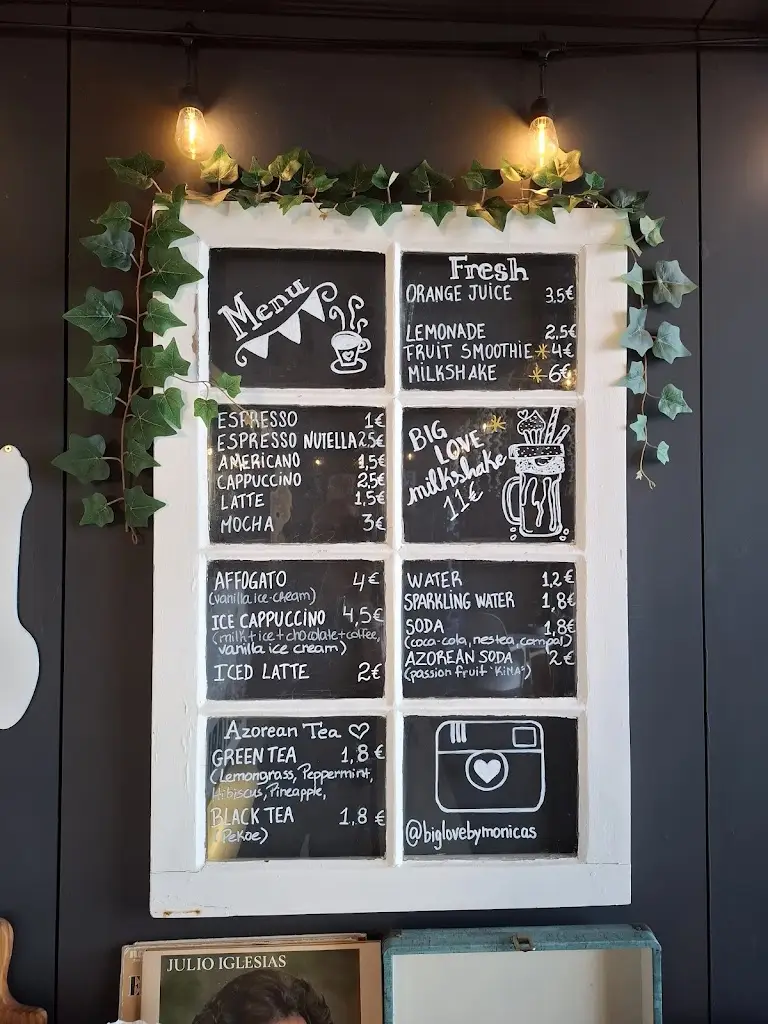 Menu
Fresh
ORANGE JUICE 3.5€
LEMONADE 2,5€
FRUIT SMOOTHIE 4€
MILKSHAKE 6€
ESPRESSO 1€
ESPRESSO NUTELLA 2.5€
AMERICANO 1,5€
CAPPUCCINO 2,5€
LATTE 1,5€
MOCHA 3€
BIG
LOVE
milkshake
11€
AFFOGATO 4€
(vanilla ice-cream)
ICE CAPPUCCINO 4,5€
(milk+ice+chocolate+coffee,
vanilla ice cream)
ICED LATTE 2€
WATER 1,2€
SPARKLING WATER 1,8€
SODA 1,8€
(coca-cola, nestea, compal)
AZOREAN SODA 2€
(passion fruit "KIMA")
Azorean Tea
GREEN TEA 1,8€
(Lemongrass, Peppermint,
Hibiscus, Pineapple,
BLACK TEA 1,8€
(Pekoe)
@biglovebymonicas
JULIO IGLESIAS